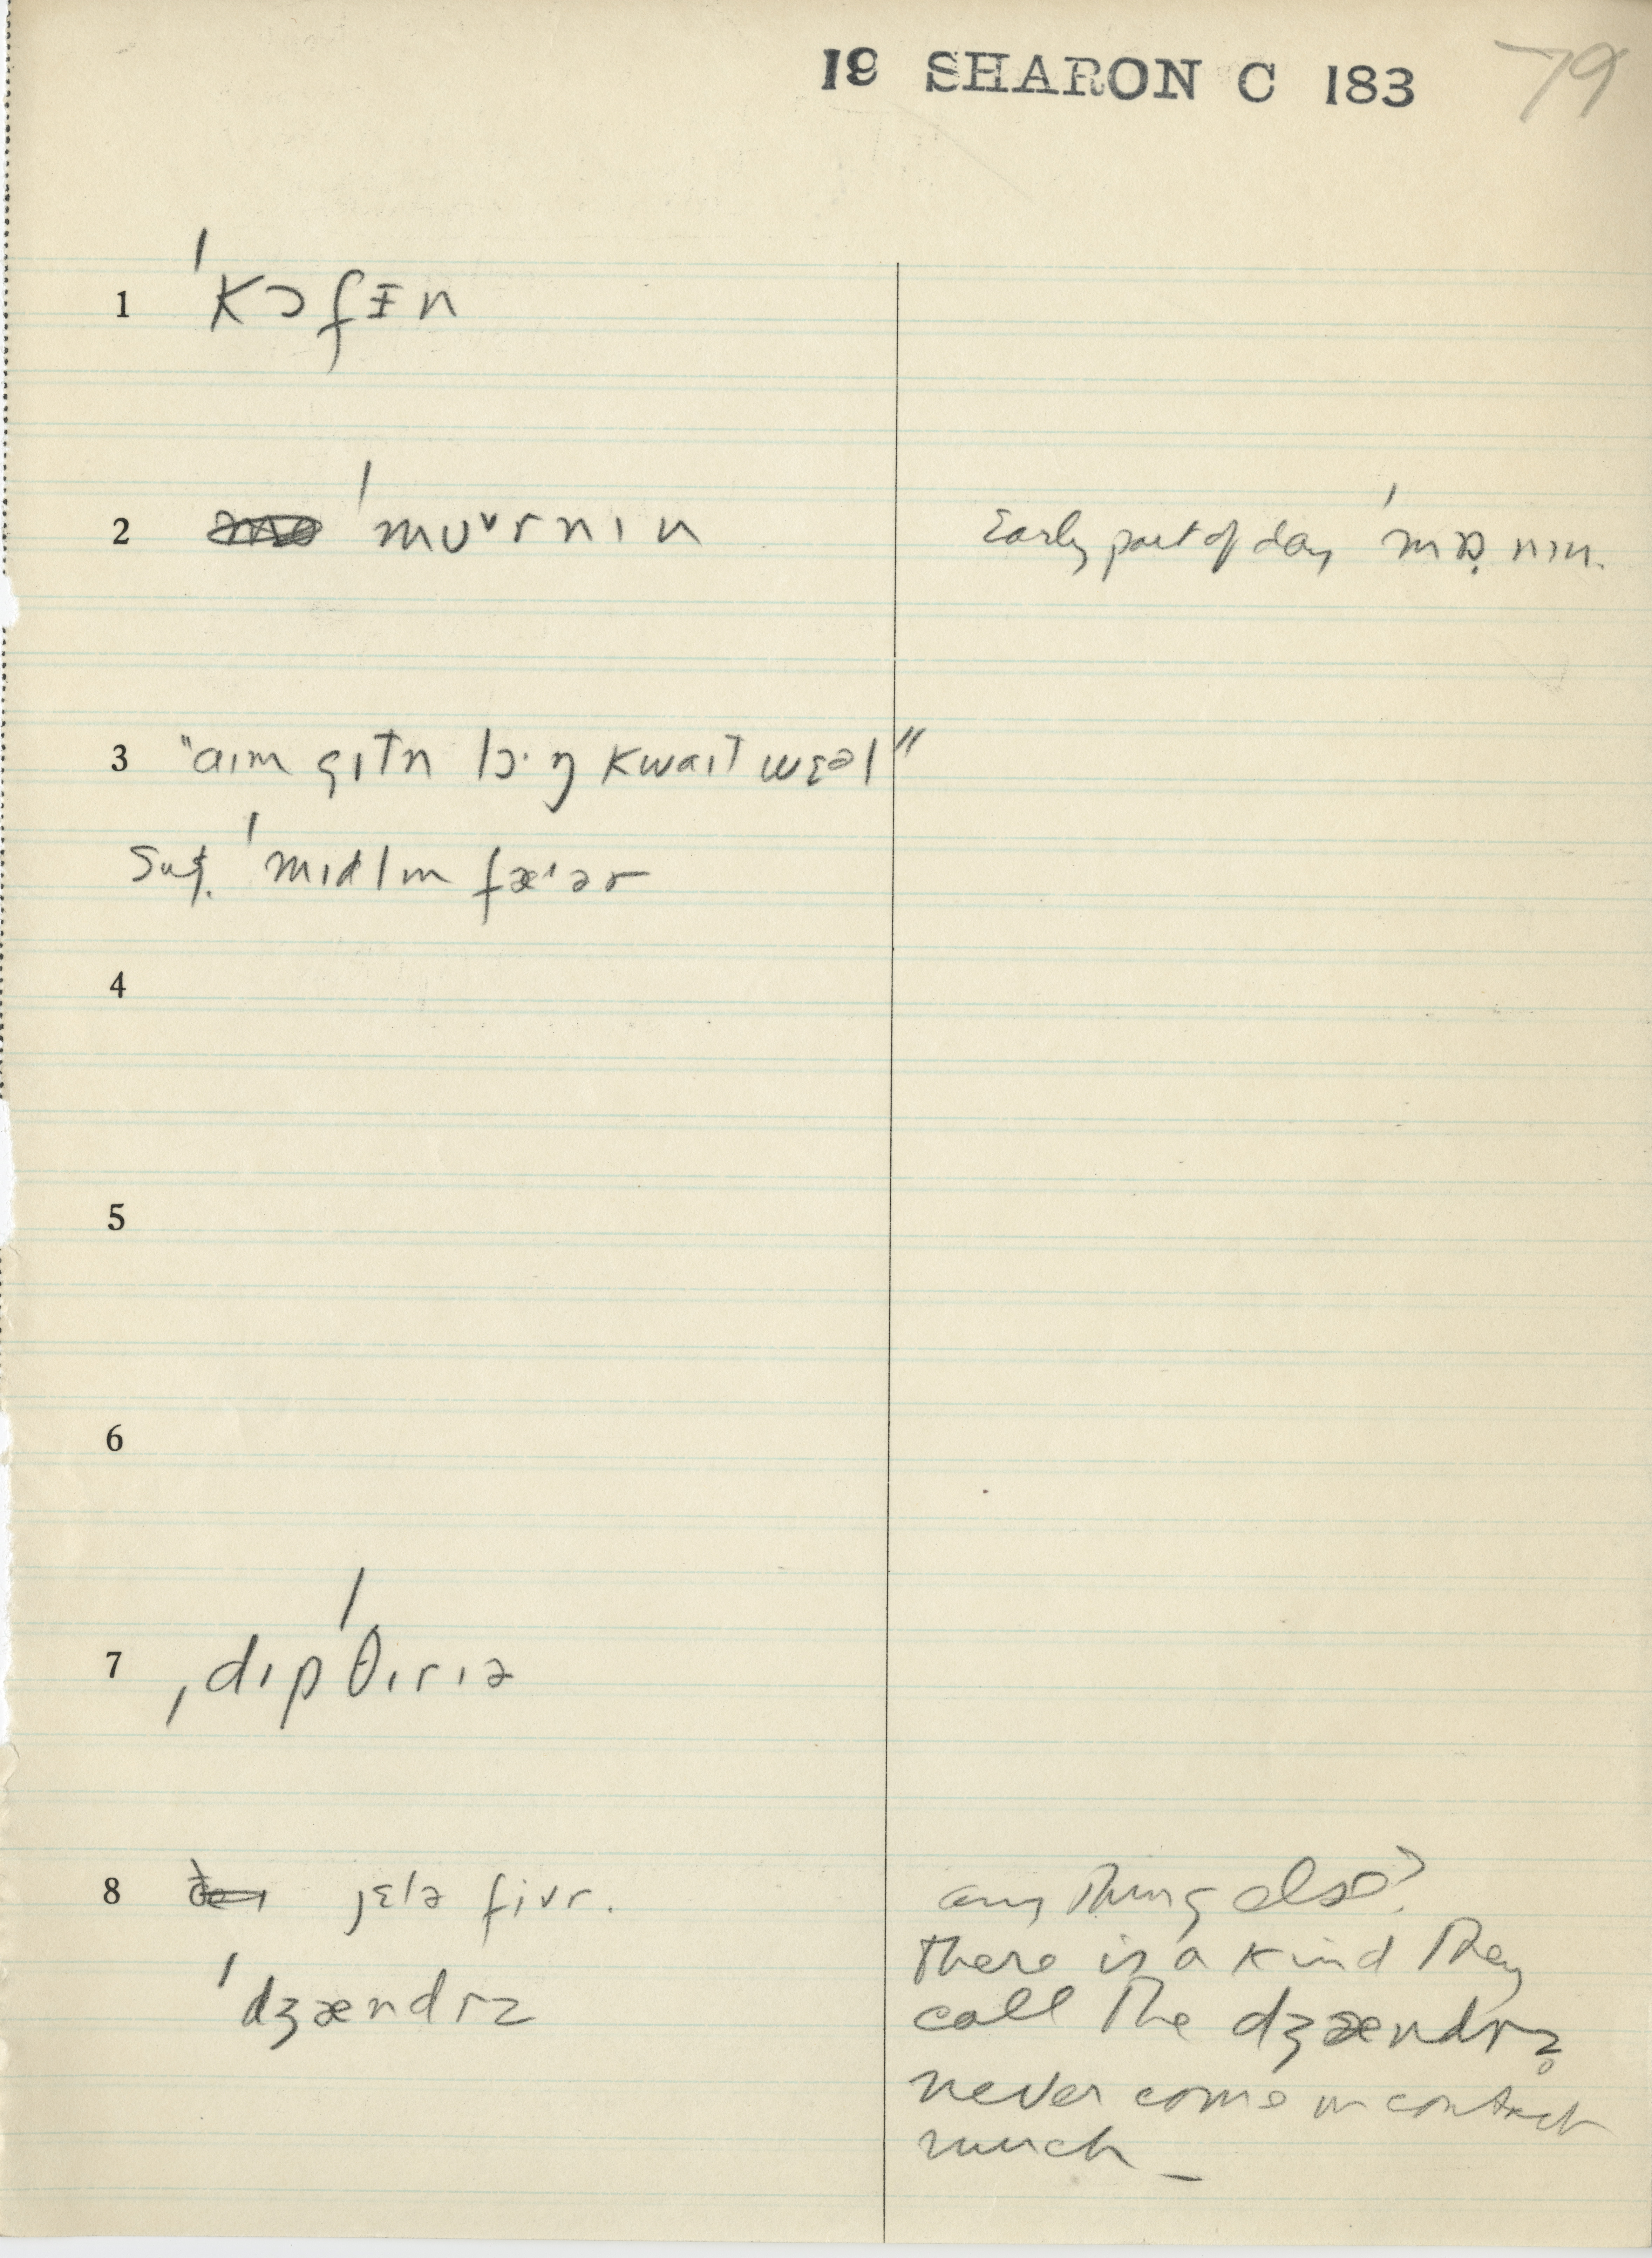 19 SHARON C 183 79
1 ˈkɔfɪn
2 ˈmʊˇrnɪn Early part of day ˈmɒ̣nɪn.
3 "aɪm gɪtn lɔ·ŋ kwaɪt wɛəl"
Sug. ˈmɪdlm fæ·ər
4
5
6
7 ˌdɪpˈθɪrɪə
8 jɛlə fivr. anything else?
ˈdʒændrz there is a kind they
call the dʒændrz̥
never come in contact
much –